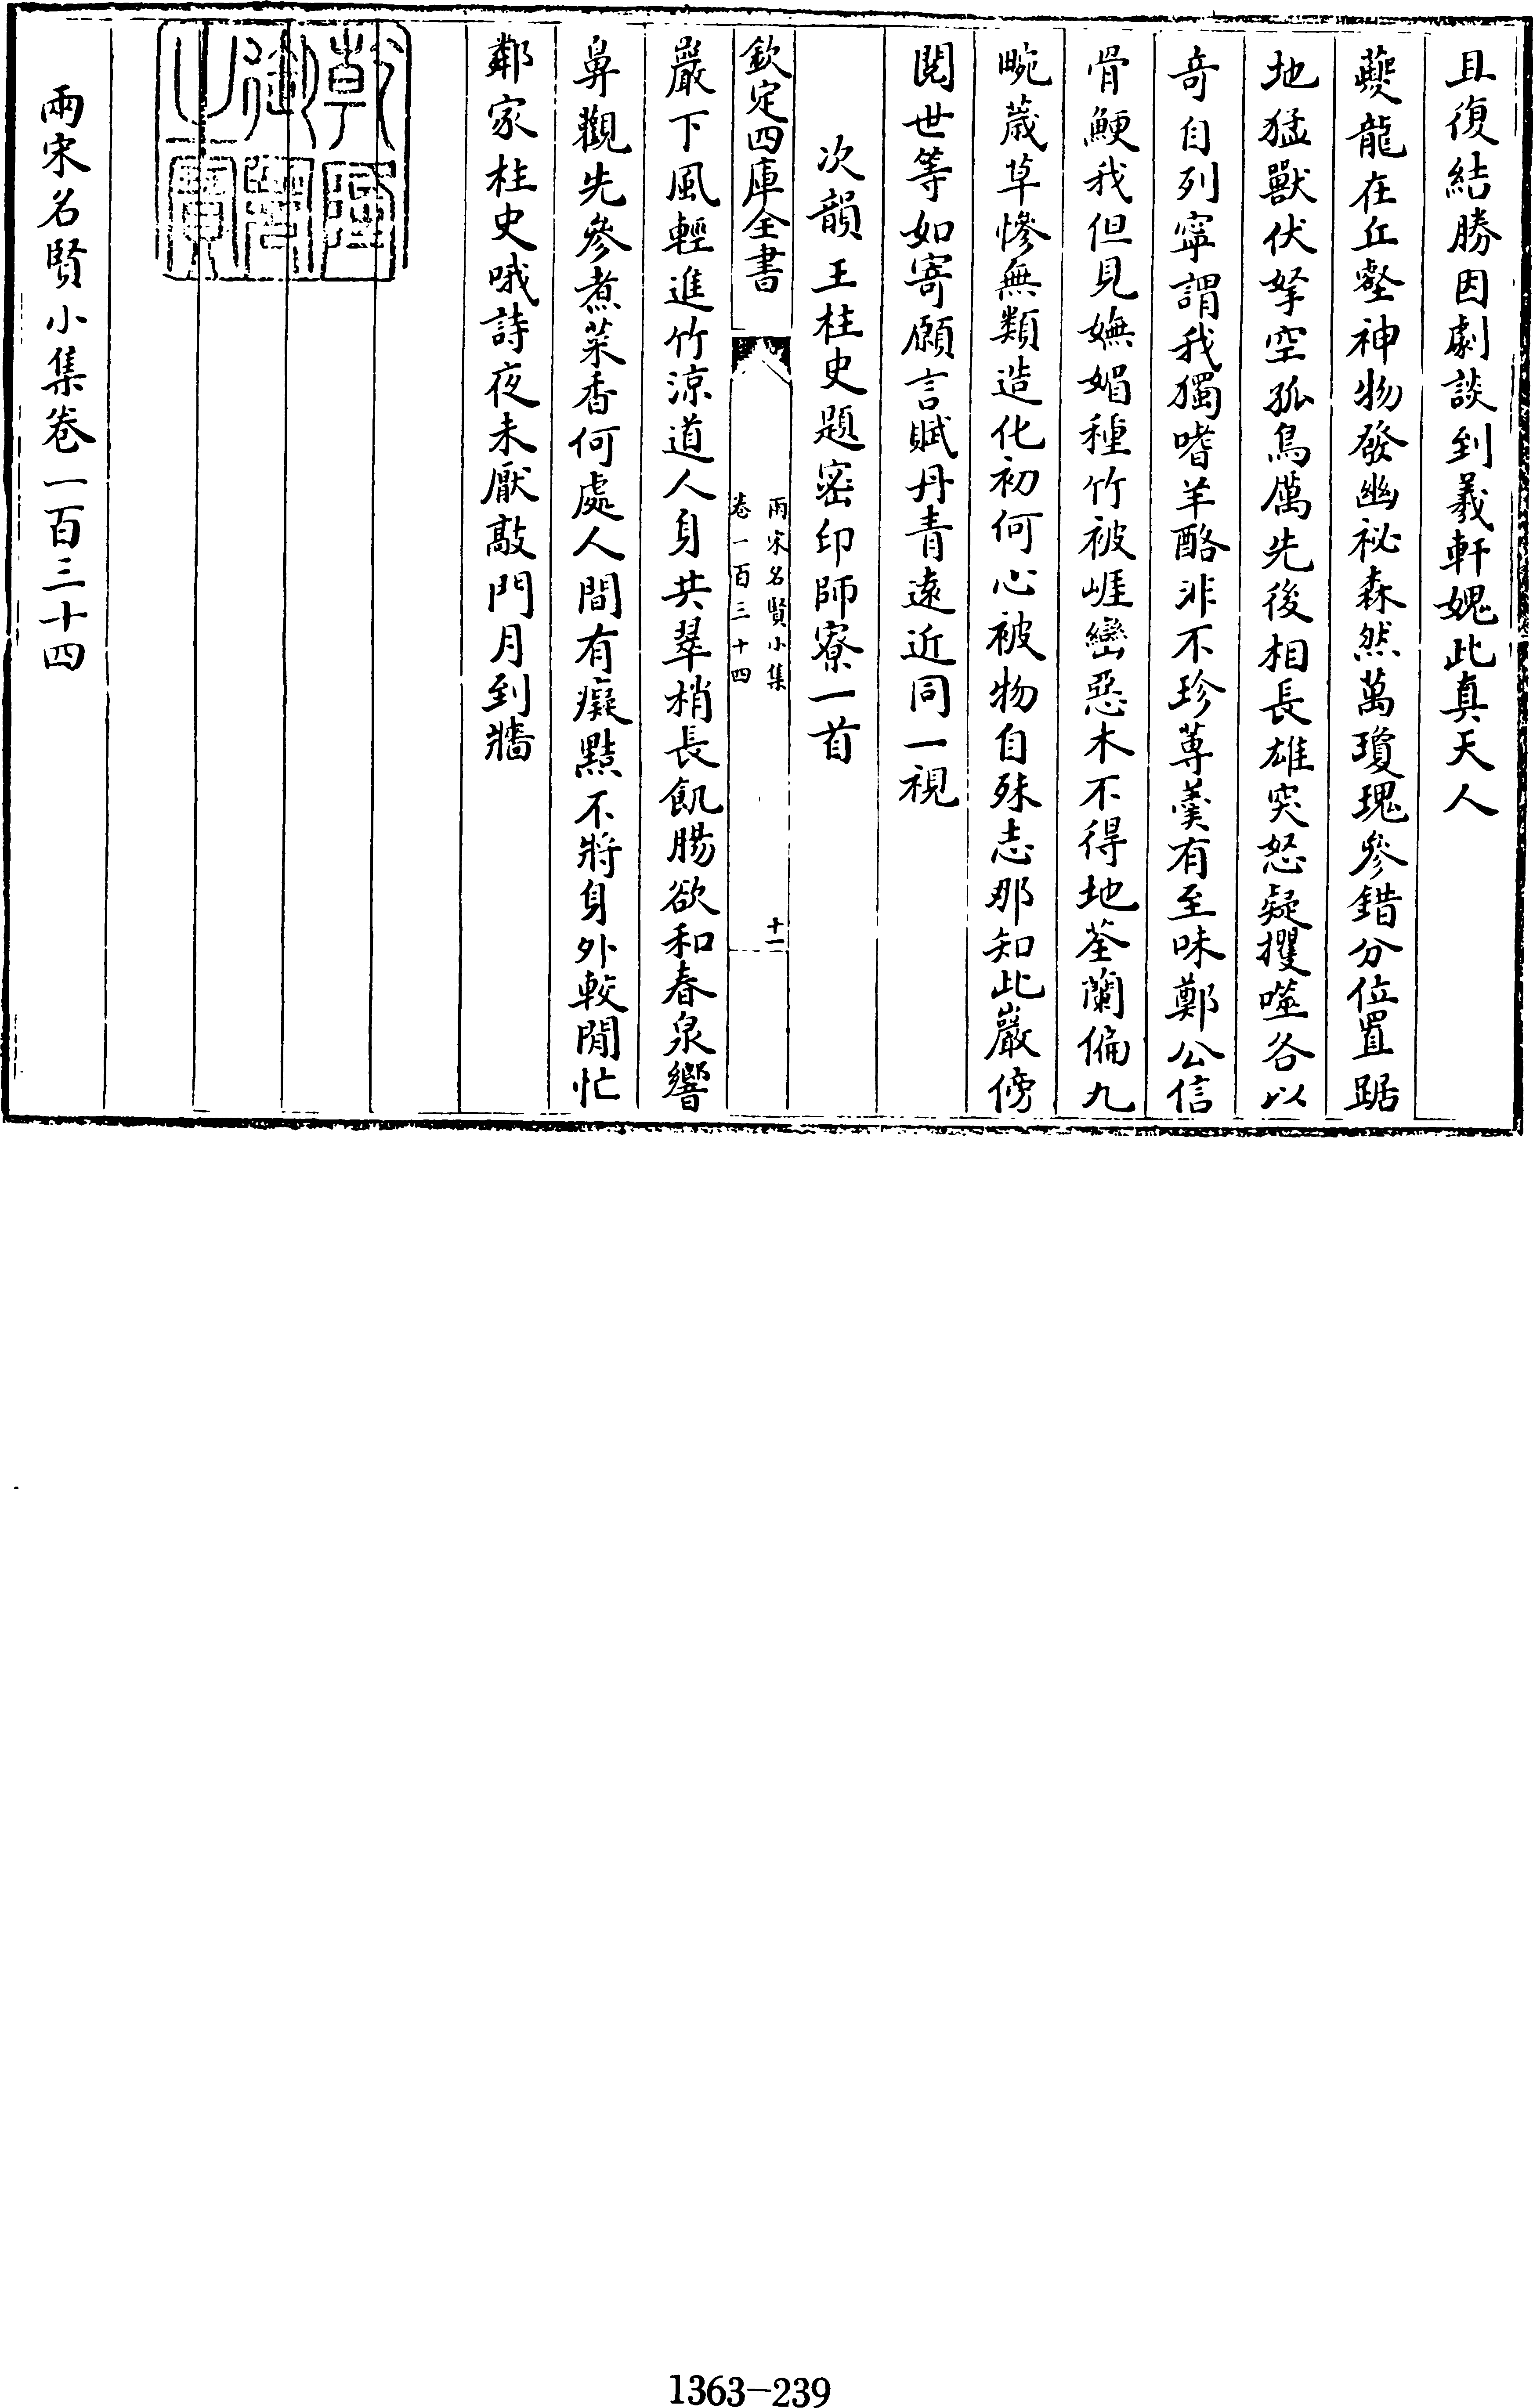 且復結勝因劇談到羲軒媿此真天人
夔龍在丘壑神物發幽祕森然萬瓊瑰參錯分位置踞
地猛獸伏拏空孤鳥厲先後相長雄突怒疑攫噬各以
奇自列寧謂我獨嗜羊酪非不珍蓴羹有至味鄭公信
骨鯁我但見嫵媚種竹被崕巒惡木不得地荃蘭偏九
畹葴草慘無類造化初何心被物自殊志那知此巖傍
閱世等如寄願言賦丹青遠近同一視
次韻王柱史題密印師寮一首
欽定四庫全書
兩宋名賢小集
卷一百三十四
十一
巖下風輕進竹涼道人身共翠梢長飢腸欲和春泉響
鼻觀先參煮菜香何處人間有癡黠不將身外較閒忙
鄰家柱史哦詩夜未厭敲門月到牆
乾隆御覽之寶
兩宋名賢小集卷一百三十四
1363-239